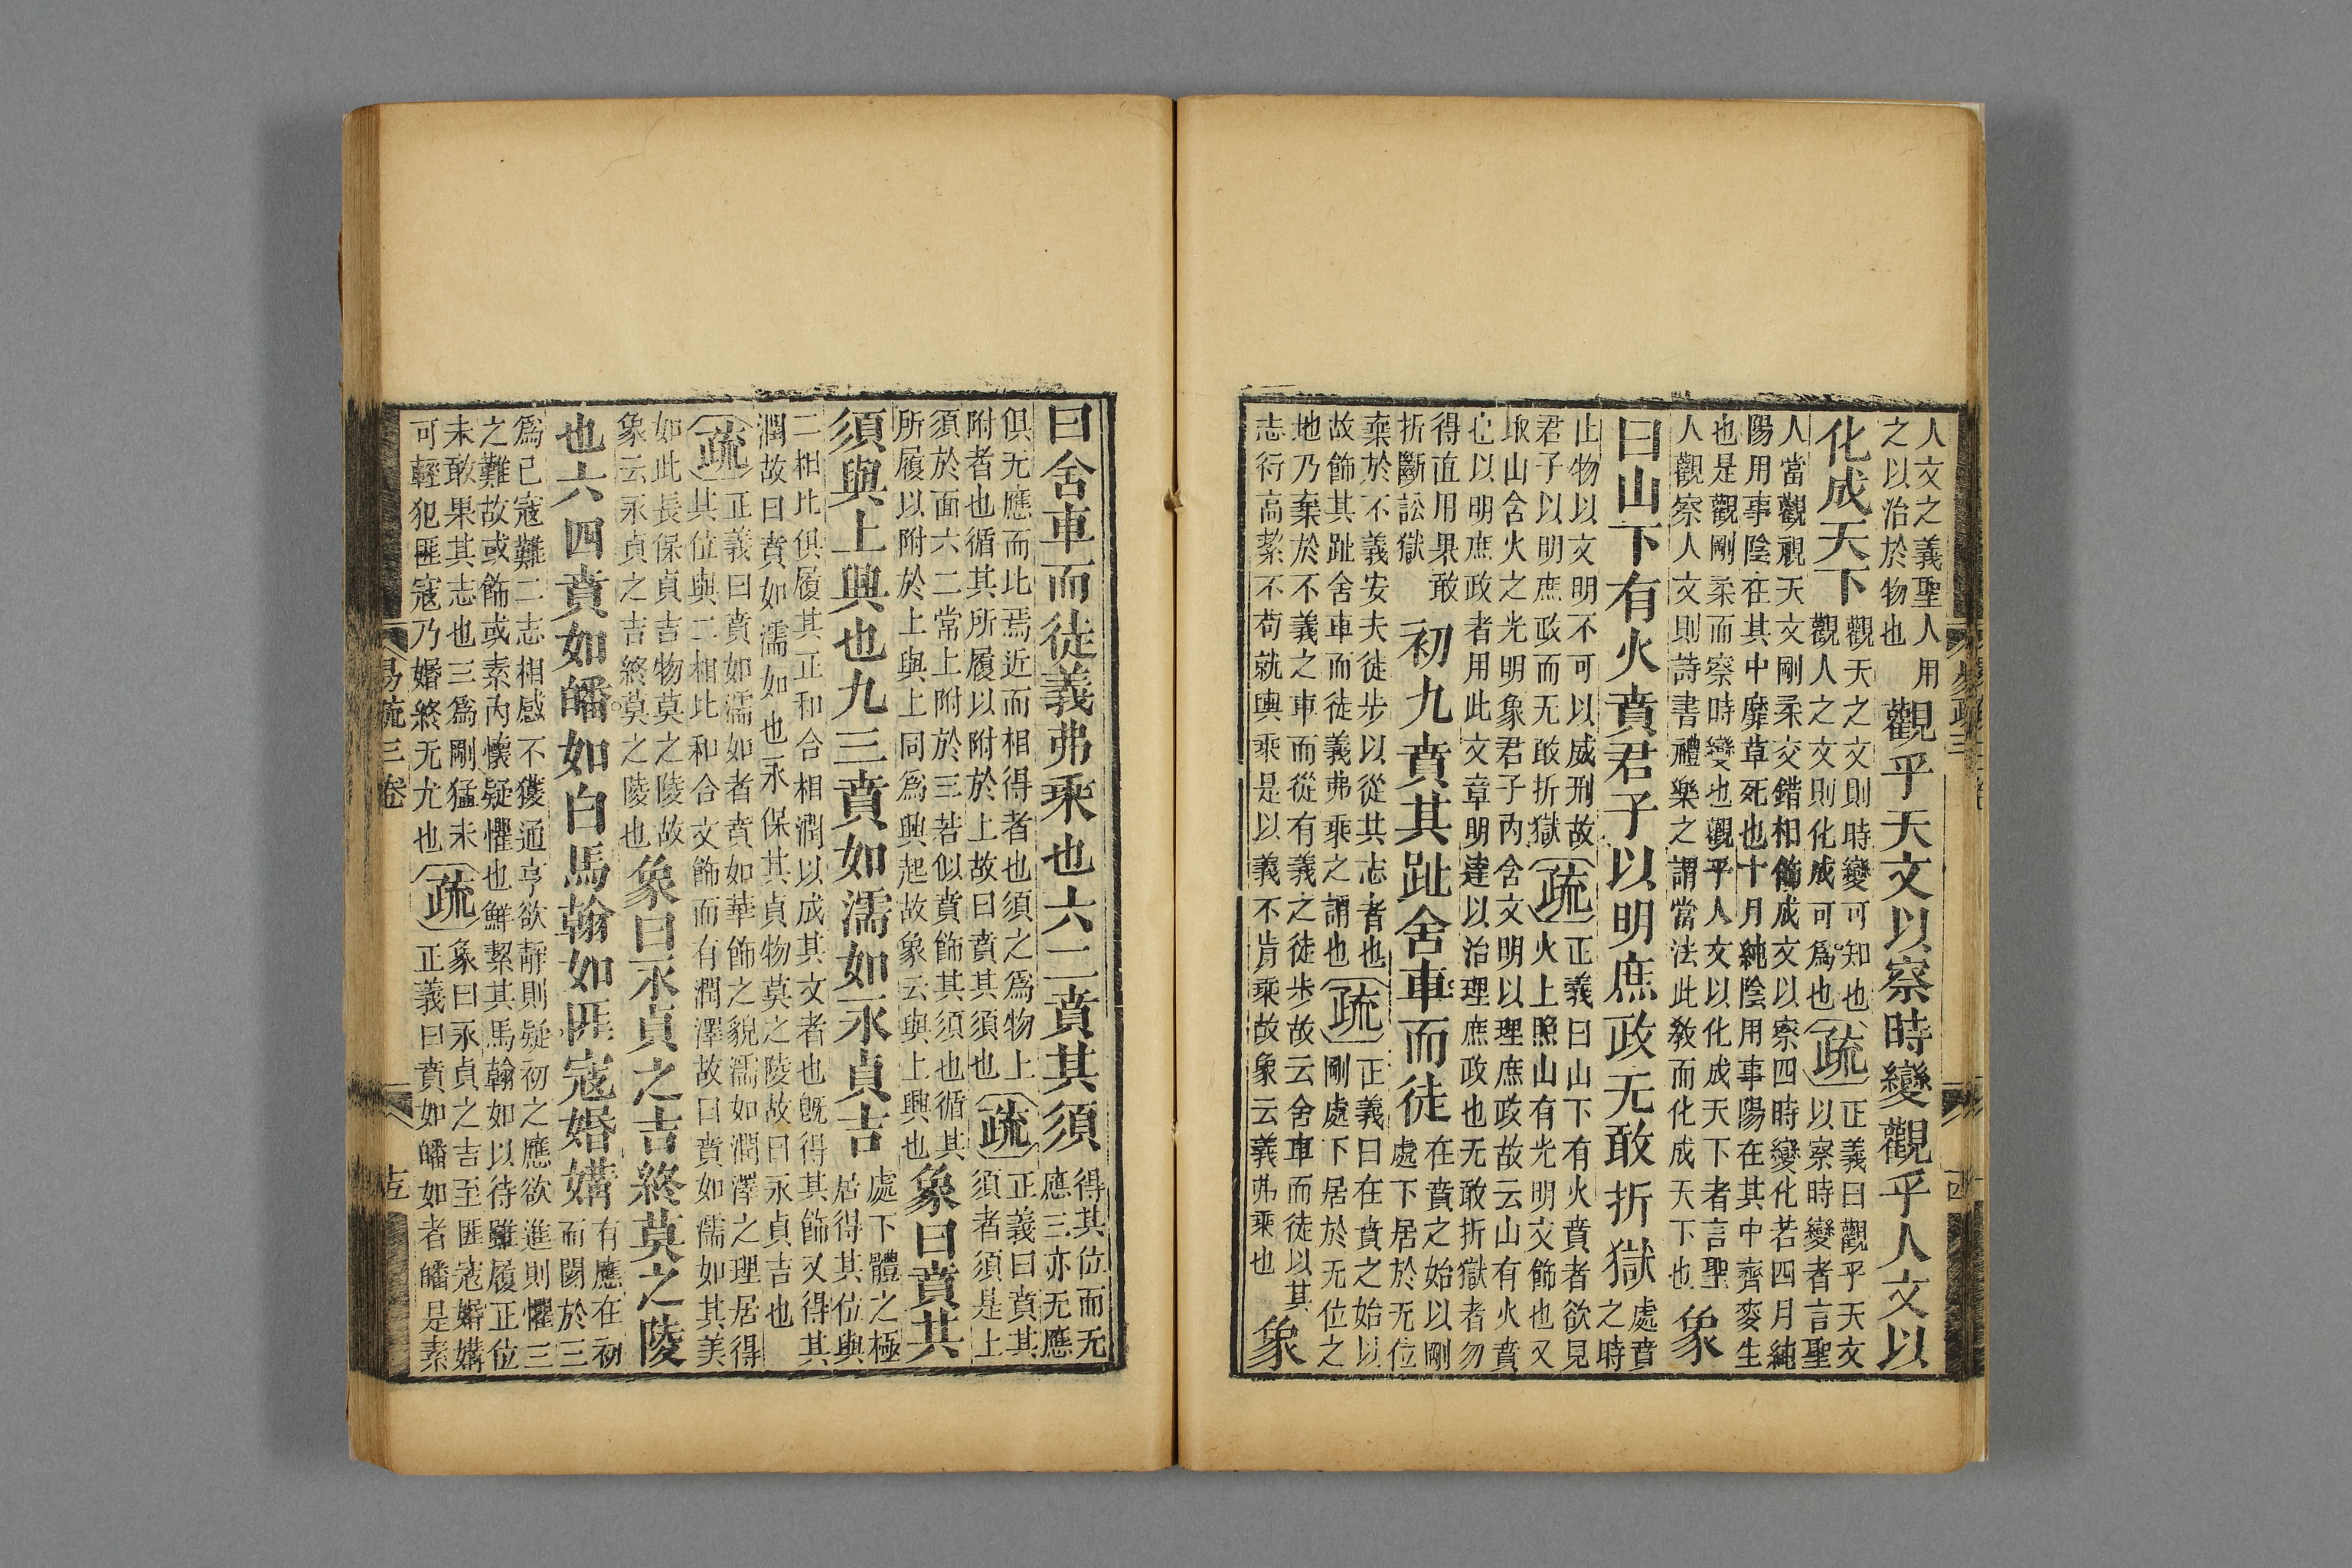 人文之義聖人用
之以治於物也
觀乎天文以察時變觀乎人文以
化成天下
觀天之文則時變可知也
觀人之文則化成可爲也
疏
正義曰觀乎天文
以察時變者言聖
人當觀視天文剛柔交錯相飾成文以察四時變化若四月純
陽用事陰在其中靡草死也十月純陰用事陽在其中齊麥生
也是觀剛柔而察時變也觀乎人文以化成天下者言聖
人觀察人文則詩書禮樂之謂當法此敎而化成天下也
象
曰山下有火賁君子以明庶政无敢折獄
處賁
之時
止物以文明不可以威刑故
君子以明庶政而无敢折獄
疏
正義曰山下有火賁者欲見
火上照山有光明文飾也又
取山含火之光明象君子內含文明以理庶政故云山有火賁
也以明庶政者用此文章明達以治理庶政也无敢折獄者勿
得直用果敢
折斷訟獄
初九賁其趾舍車而徒
在賁之始以剛
處下居於无位
棄於不義安夫徒步以從其志者也
故飾其趾舍車而徒義弗乘之謂也
疏
正義曰在賁之始以
剛處下居於无位之
地乃棄於不義之車而從有義之徒步故云舍車而徒以其
志行高絜不苟就輿乘是以義不肯乘故象云義弗乘也
象
曰舍車而徒義弗乘也六二賁其須
得其位而无
應三亦无應
俱无應而比焉近而相得者也須之爲物上
附者也循其所履以附於上故曰賁其須也
疏
正義曰賁其
須者須是上
須於面六二常上附於三若似賁飾其須也循其
所履以附於上與上同爲興起故象云與上興也
象曰賁其
須與上興也九三賁如濡如永貞吉
處下體之極
居得其位與
二相比俱履其正和合相潤以成其文者也旣得其飾又得其
潤故曰賁如濡如也永保其貞物莫之陵故曰永貞吉也
疏
正義曰賁如濡如者賁如華飾之貌濡如潤澤之理居得
其位與二相比和合文飾而有潤澤故曰賁如濡如其美
如此長保貞吉物莫之陵故
象云永貞之吉終莫之陵也
象曰永貞之吉終莫之陵
也六四賁如皤如白馬翰如匪寇婚媾
有應在初
而閡於三
爲己寇難二志相感不獲通亨欲靜則疑初之應欲進則懼三
之難故或飾或素內懷疑懼也鮮絜其馬翰如以待雖履正位
未敢果其志也三爲剛猛未
可輕犯匪寇乃婚終无尤也
疏
象曰永貞之吉至匪寇婚媾
正義曰賁如皤如者皤是素
易疏三卷